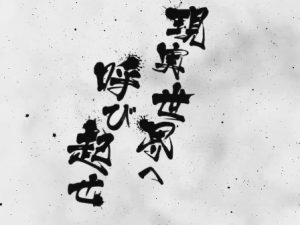 現実世界へ
呼び起せ